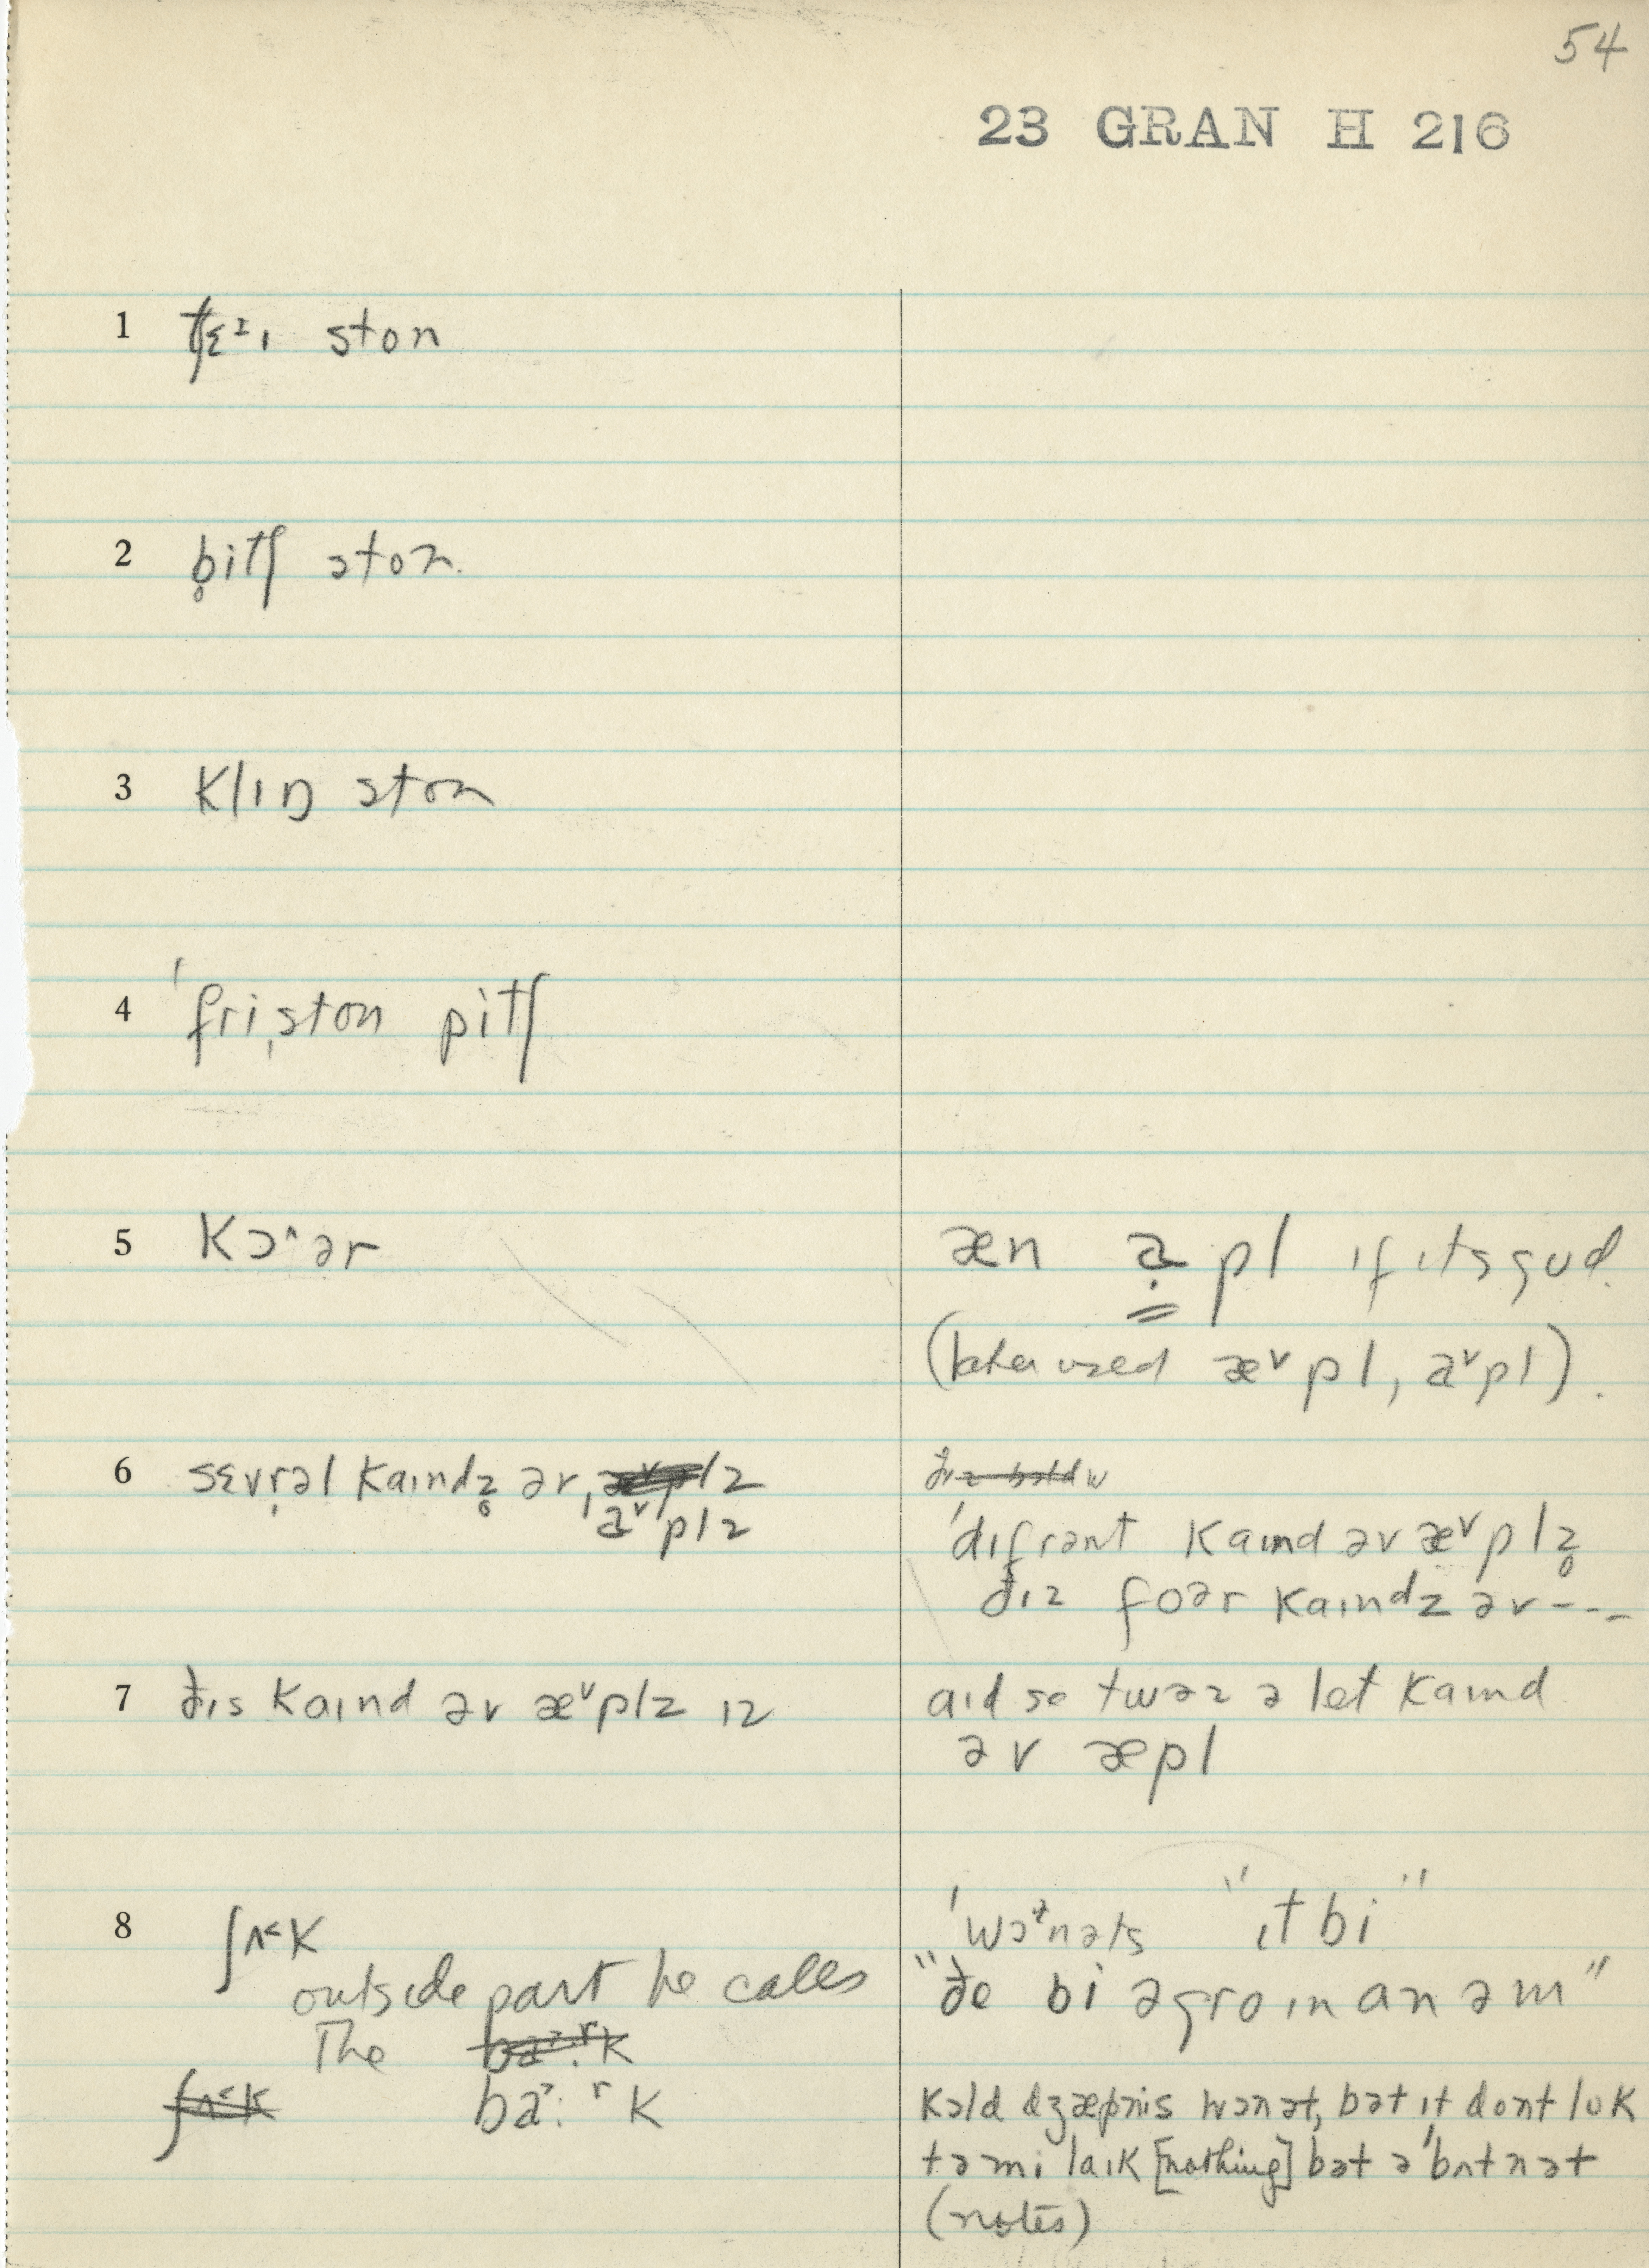 54
23 GRAN H 216
1 tʃɛᶦɹ ston
2 b̥itʃ ston.
3 klɪŋ ston
4 ˈfriˌston pitʃ
5 kɔ^ər
æn a̤ pl ɪf ɪts gud.
(later used æᵛpl, aᵛpl).
6 sɛvr̩əl kaɪndz̥ ər, æᵛplz
aᵛplz
ˈdɪfrənt kaɪnd əv æᵛplz̥
ðɪz foər kaɪndz əv ---
7 ðɪs kaɪnd əv æᵛplz ɪz
aɪd se twəz ə let kaɪnd
əv æpl
8 ʃʌ˂k
outside part he calls
The ba˃:ʳk
ʃʌ˂k ba˃:ʳk
ˈwɔᶧnəts "ɪt bi"
"ðe bi əgroɪn an əm"
kɔld dʒæpnis wɔnət, bət ɪt dont luk
tə mi laɪk [nothing] bət ə ˈbʌtnət
(notes)